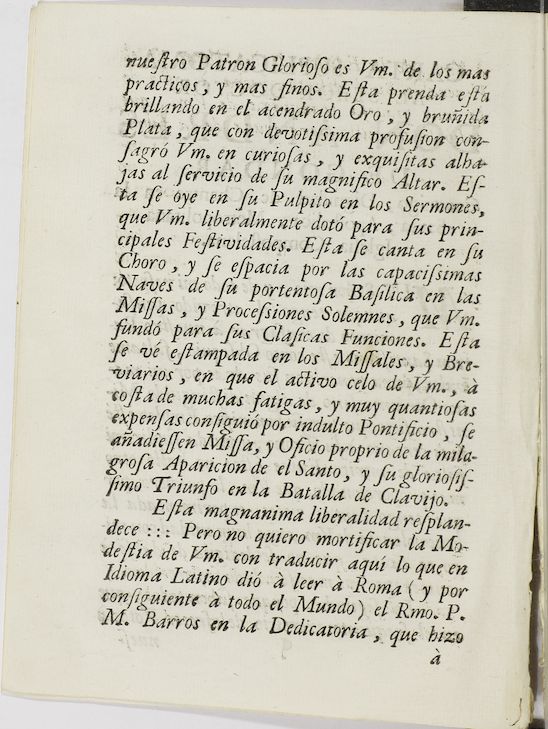 nueſtro Patron Glorioſo es Vm. de los mas
practicos, y mas finos. Eſta prenda eſtá
brillando en el acendrado Oro, y bruñida
Plata, que con devotiſsima profuſion con-
ſagró Vm. en curioſas, y exquiſitas alha-
jas al ſervicio de ſu magnifico Altar. Eſ-
ta ſe oye en ſu Pulpito en los Sermones,
que Vm. liberalmente dotó para ſus prin-
cipales Feſtividades. Eſta ſe canta en ſu
Choro, y ſe eſpacia por las capaciſsimas
Naves de ſu portentoſa Baſilica en las
Miſſas, y Proceſsiones Solemnes, que Vm.
fundó para ſus Claſicas Funciones. Eſta
ſe vé eſtampada en los Miſſales, y Bre-
viarios, en que el activo celo de Vm., à
coſta de muchas fatigas, y muy quantioſas
expenſas conſiguiò por indulto Pontificio, ſe
añadieſſen Miſſa, y Oficio proprio de la mila-
groſa Aparicion de el Santo, y ſu glorioſiſ-
ſimo Triunfo en la Batalla de Clavijo.
Eſta magnanima liberalidad reſplan-
dece ::: Pero no quiero mortificar la Mo-
deſtia de Vm. con traducir aqui lo que en
Idioma Latino dió à leer à Roma (y por
conſiguiente à todo el Mundo) el Rmo. P.
M. Barros en la Dedicatoria, que hizo
à